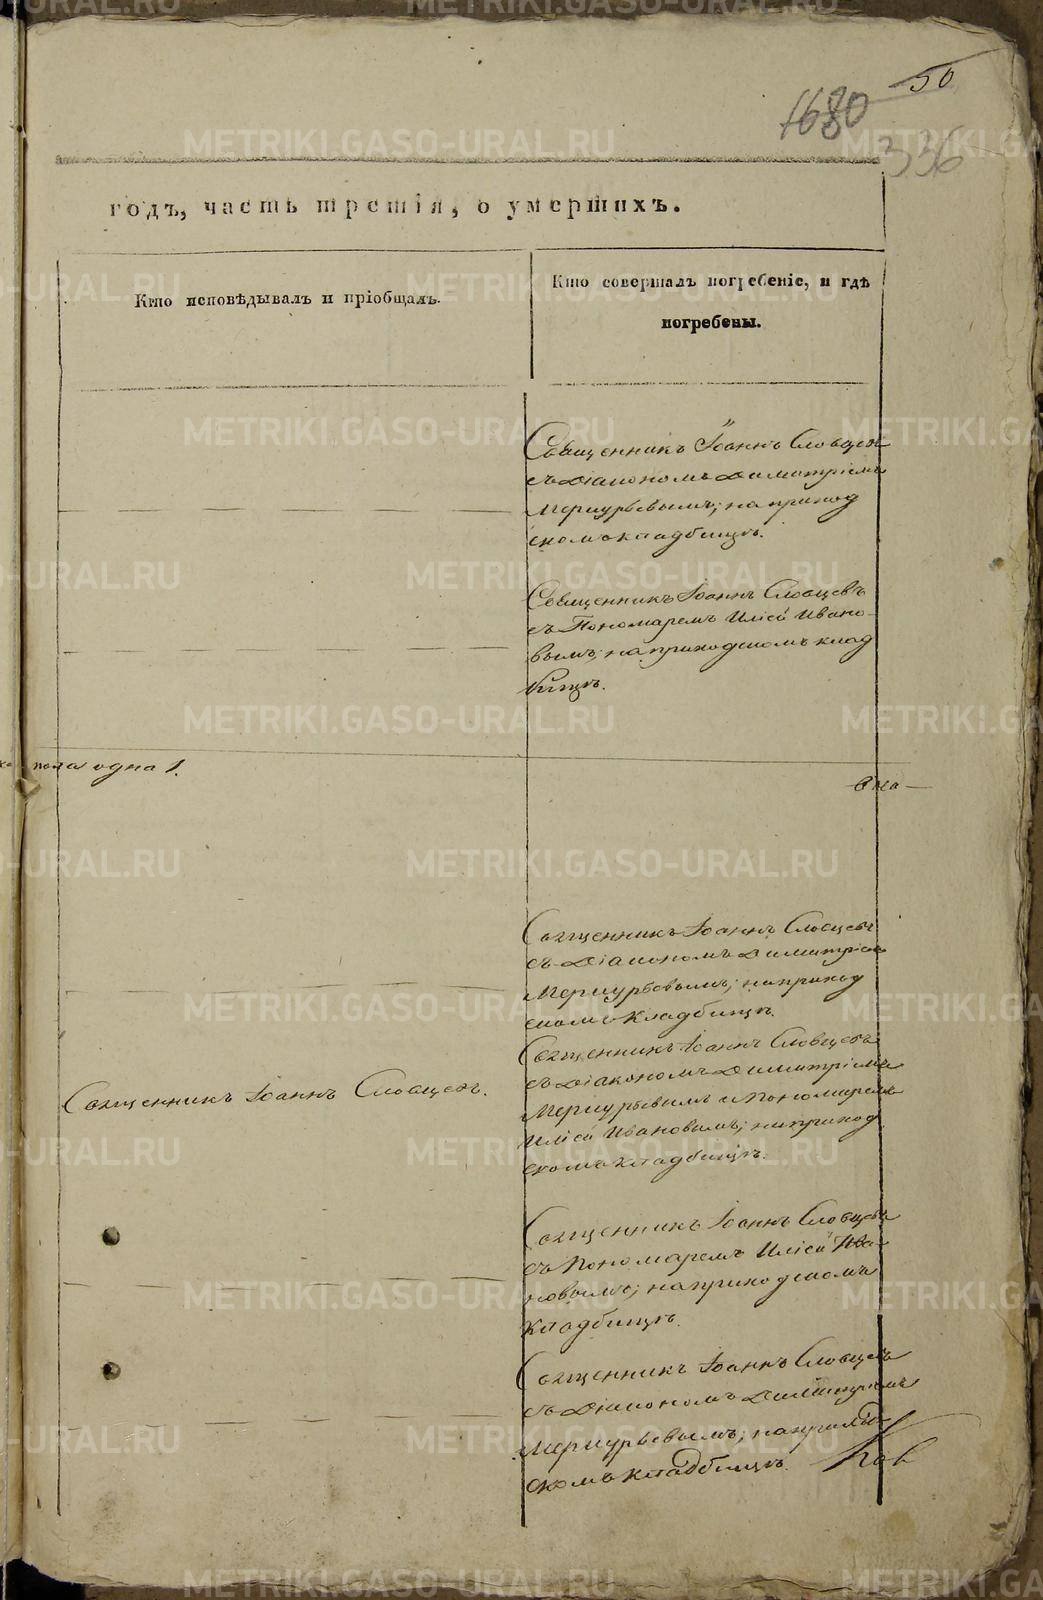 50
1680
336
годъ, часть третія, о умершихъ.
Кто исповѣдывалъ и пріобщалъ.
Кто совершалъ погребеніе, и гдѣ
погребены.
Священникъ Іоаннъ Словцевъ
съ Діакономъ Димитріемъ
Меркурьевымъ; на приход
скомъ кладбищѣ.
Священникъ Іоаннъ Словцевъ
съ Пономаремъ Иліей Ивано
вымъ; на приходскомъ клад
бищѣ.
пола одна 1.
Священникъ Іоаннъ Словцевъ
съ Діакономъ Димитріемъ
Меркурьевымъ; на приход
скомъ кладбищѣ.
Священникъ Іоаннъ Словцевъ
съ Діакономъ Димитріемъ
Священникъ Іоаннъ Словцевъ.
Меркурьевымъ и Пономаремъ
Иліей Ивановымъ; на приход
скомъ кладбищѣ.
Священникъ Іоаннъ Словцевъ
съ Пономаремъ Иліей Ива
новымъ; на приходскомъ
кладбищѣ.
Священникъ Іоаннъ Словцевъ
съ Діакономъ Димитріемъ
Меркурьевымъ; на приход
скомъ кладбищѣ.
METRIKI.GASO-URAL.RU